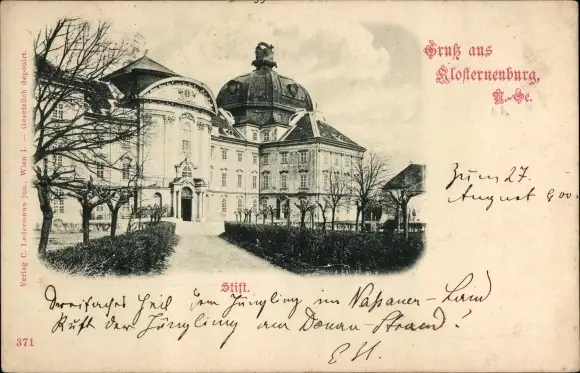 Gruß aus
Klosterneuburg,
N.-Oe.
Zum 27.
August 900.
Verlag C. Ledermann jun., Wien I. — Gesetzlich deponirt.
Stift.
Dreifaches Heil dem Jüngling im Nassauer-Land
Ruft der Jüngling am Donau-Strand!
371